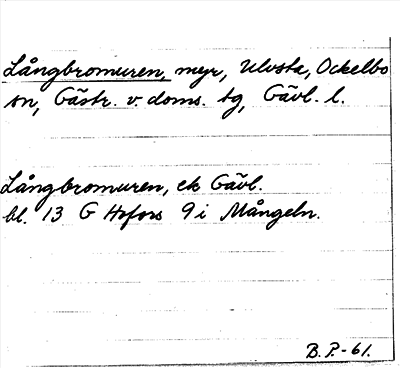 Långbromuren, myr, Ulvsta, Ockelbo
sn, Gästr. v. doms. tg, Gävl. l.
Långbromuren, ek Gävl.
bl. 13 G Hofors 9 i Mångeln.
B.P.-61.